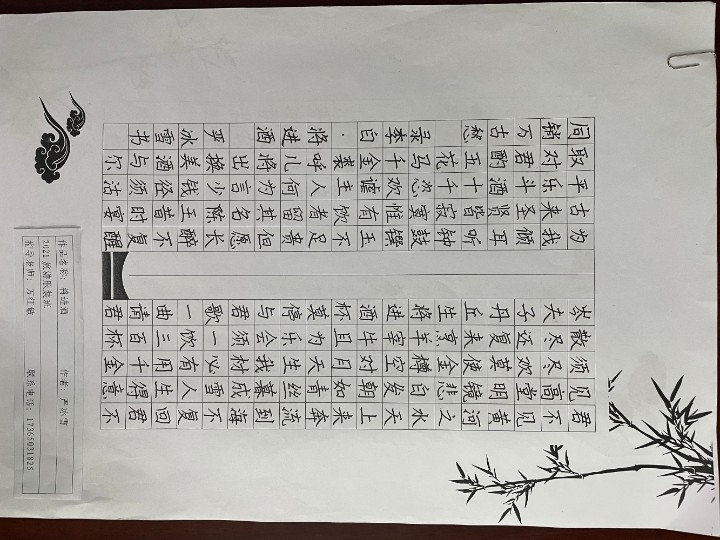 君不见黄河之水天上来奔流到海不复回君不
见高堂明镜悲白发朝如青丝暮成雪人生得意
须尽欢莫使金樽空对月天生我材必有用千金
散尽还复来烹羊宰牛且为乐会须一饮三百杯
岑夫子丹丘生将进酒杯莫停与君歌一曲请君
为我倾耳听钟鼓馔玉不足贵但愿长醉不复醒
古来圣贤皆寂寞惟有饮者留其名陈王昔时宴
平乐斗酒十千恣欢谑主人何为言少钱径须沽
取对君酌五花马千金裘呼儿将出换美酒与尔
同销万古愁 录李白·将进酒 严冰雪书
作品名称：将进酒 作者：严冰雪
2021级
指导老师：万红敏 联系电话：17365031825